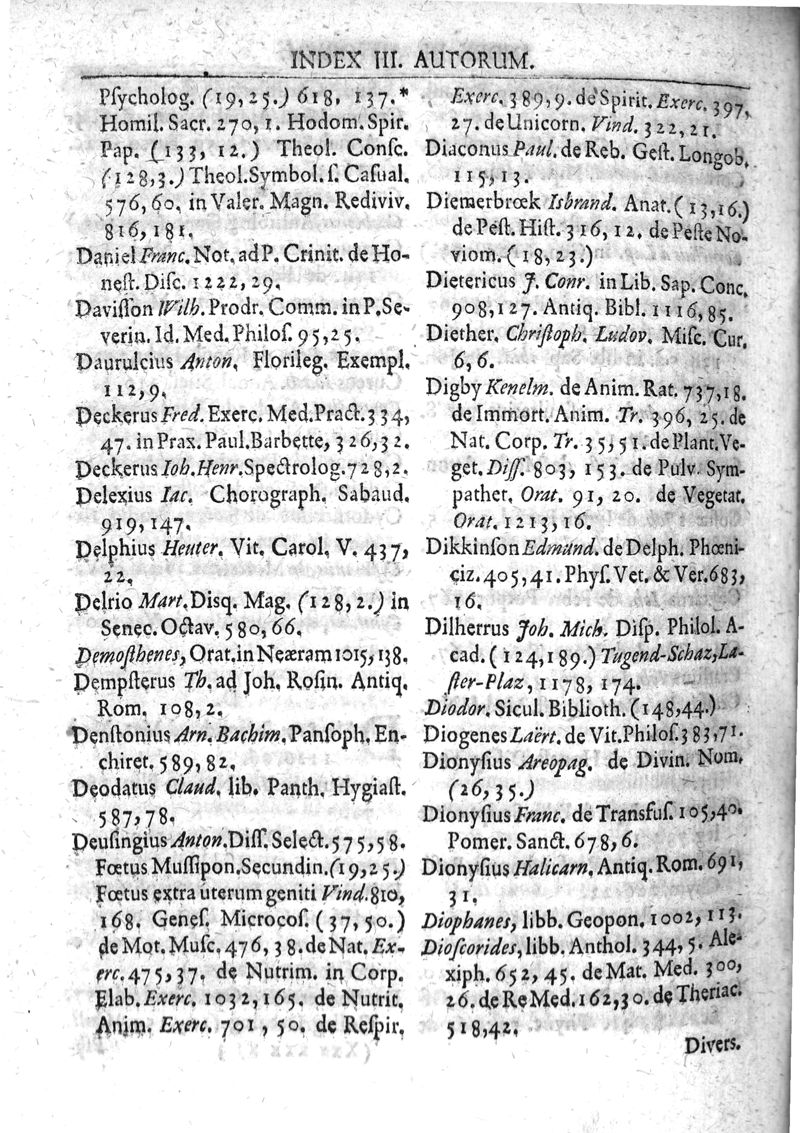 INDEX III. AUTORUM.
Pſycholog. (19,25.) 618, 137.*
Homil. Sacr. 270,1. Hodom. Spir.
Pap. (133, 12.) Theol. Conſc.
(128,3.) Theol. Symbol. ſ. Caſual.
576,60. in Valer. Magn. Rediviv.
816, 181.
Daniel Franc. Not. ad P. Crinit. de Ho-
neſt. Diſc. 1222, 29.
Daviſſon Wilh. Prodr. Comm. in P. Se-
verin. Id. Med. Philoſ. 95,25.
Daurulcius Anton. Florileg. Exempl.
112,9.
Deckerus Fred. Exerc. Med. Pract. 334,
47. in Prax. Paul. Barbette, 326,32.
Deckerus Ioh. Henr. Spectrolog. 728,2.
Delexius Iac. Chorograph. Sabaud.
919, 147.
Delphius Heuter. Vit. Carol. V. 437,
22.
Delrio Mart. Diſq. Mag. (128,2.) in
Senec. Octav. 580, 66.
Demoſthenes, Orat. in Neæram 1015,138.
Dempſterus Th. ad Joh. Roſin. Antiq.
Rom. 108,2.
Denſtonius Arn. Bachim. Panſoph. En-
chiret. 589, 82.
Deodatus Claud. lib. Panth. Hygiaſt.
587,78.
Deuſingius Anton. Diſſ. Select. 575,58.
Fœtus Muſſipon. Secundin. (19,25.)
Fœtus extra uterum geniti Vind. 810,
168. Geneſ. Microcoſ. (37,50.)
de Mot. Muſc. 476, 38. de Nat. Ex-
erc. 475,37. de Nutrim. in Corp.
Elab. Exerc. 1032,165. de Nutrit.
Anim. Exerc. 701, 50. de Reſpir.
Exerc. 389,9. de Spirit. Exerc. 397,
27. de Unicorn. Vind. 322,21.
Diaconus Paul. de Reb. Geſt. Longob.
115,13.
Diemerbroek Isbrand. Anat. (13,16.)
de Peſt. Hiſt. 316, 12. de Peſte No-
viom. (18,23.)
Dietericus J. Conr. in Lib. Sap. Conc.
908,127. Antiq. Bibl. 1116,85.
Diether. Chriſtoph. Ludov. Miſc. Cur.
6,6.
Digby Kenelm. de Anim. Rat. 737,18.
de Immort. Anim. Tr. 396, 25. de
Nat. Corp. Tr. 35,51. de Plant. Ve-
get. Diſſ. 803, 153. de Pulv. Sym-
pather. Orat. 91, 20. de Vegetat.
Orat. 1213,16.
Dikkinſon Edmund. de Delph. Phœni-
ciz. 405,41. Phyſ. Vet. & Ver. 683,
16.
Dilherrus Joh. Mich. Diſp. Philol. A-
cad. (124,189.) Tugend-Schaz, La-
ſter-Plaz, 1178, 174.
Diodor. Sicul. Biblioth. (148,44.)
Diogenes Laërt. de Vit. Philoſ. 383,71.
Dionyſius Areopag. de Divin. Nom.
(26,35.)
Dionyſius Franc. de Transfuſ. 105,40.
Pomer. Sanct. 678,6.
Dionyſius Halicarn. Antiq. Rom. 691,
31.
Diophanes, libb. Geopon. 1002, 113.
Dioſcorides, libb. Anthol. 344,5. Ale-
xiph. 652, 45. de Mat. Med. 300,
26. de Re Med. 162,30. de Theriac.
518,42.
Divers.